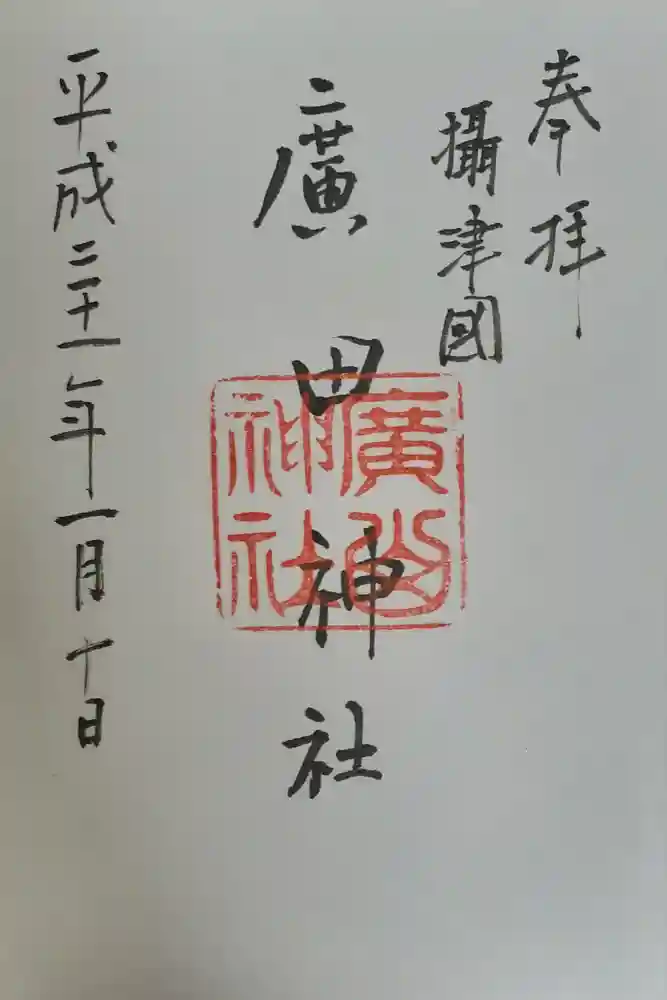 奉拝
攝津國
廣田神社
平成三十一年一月十日
廣田
神社